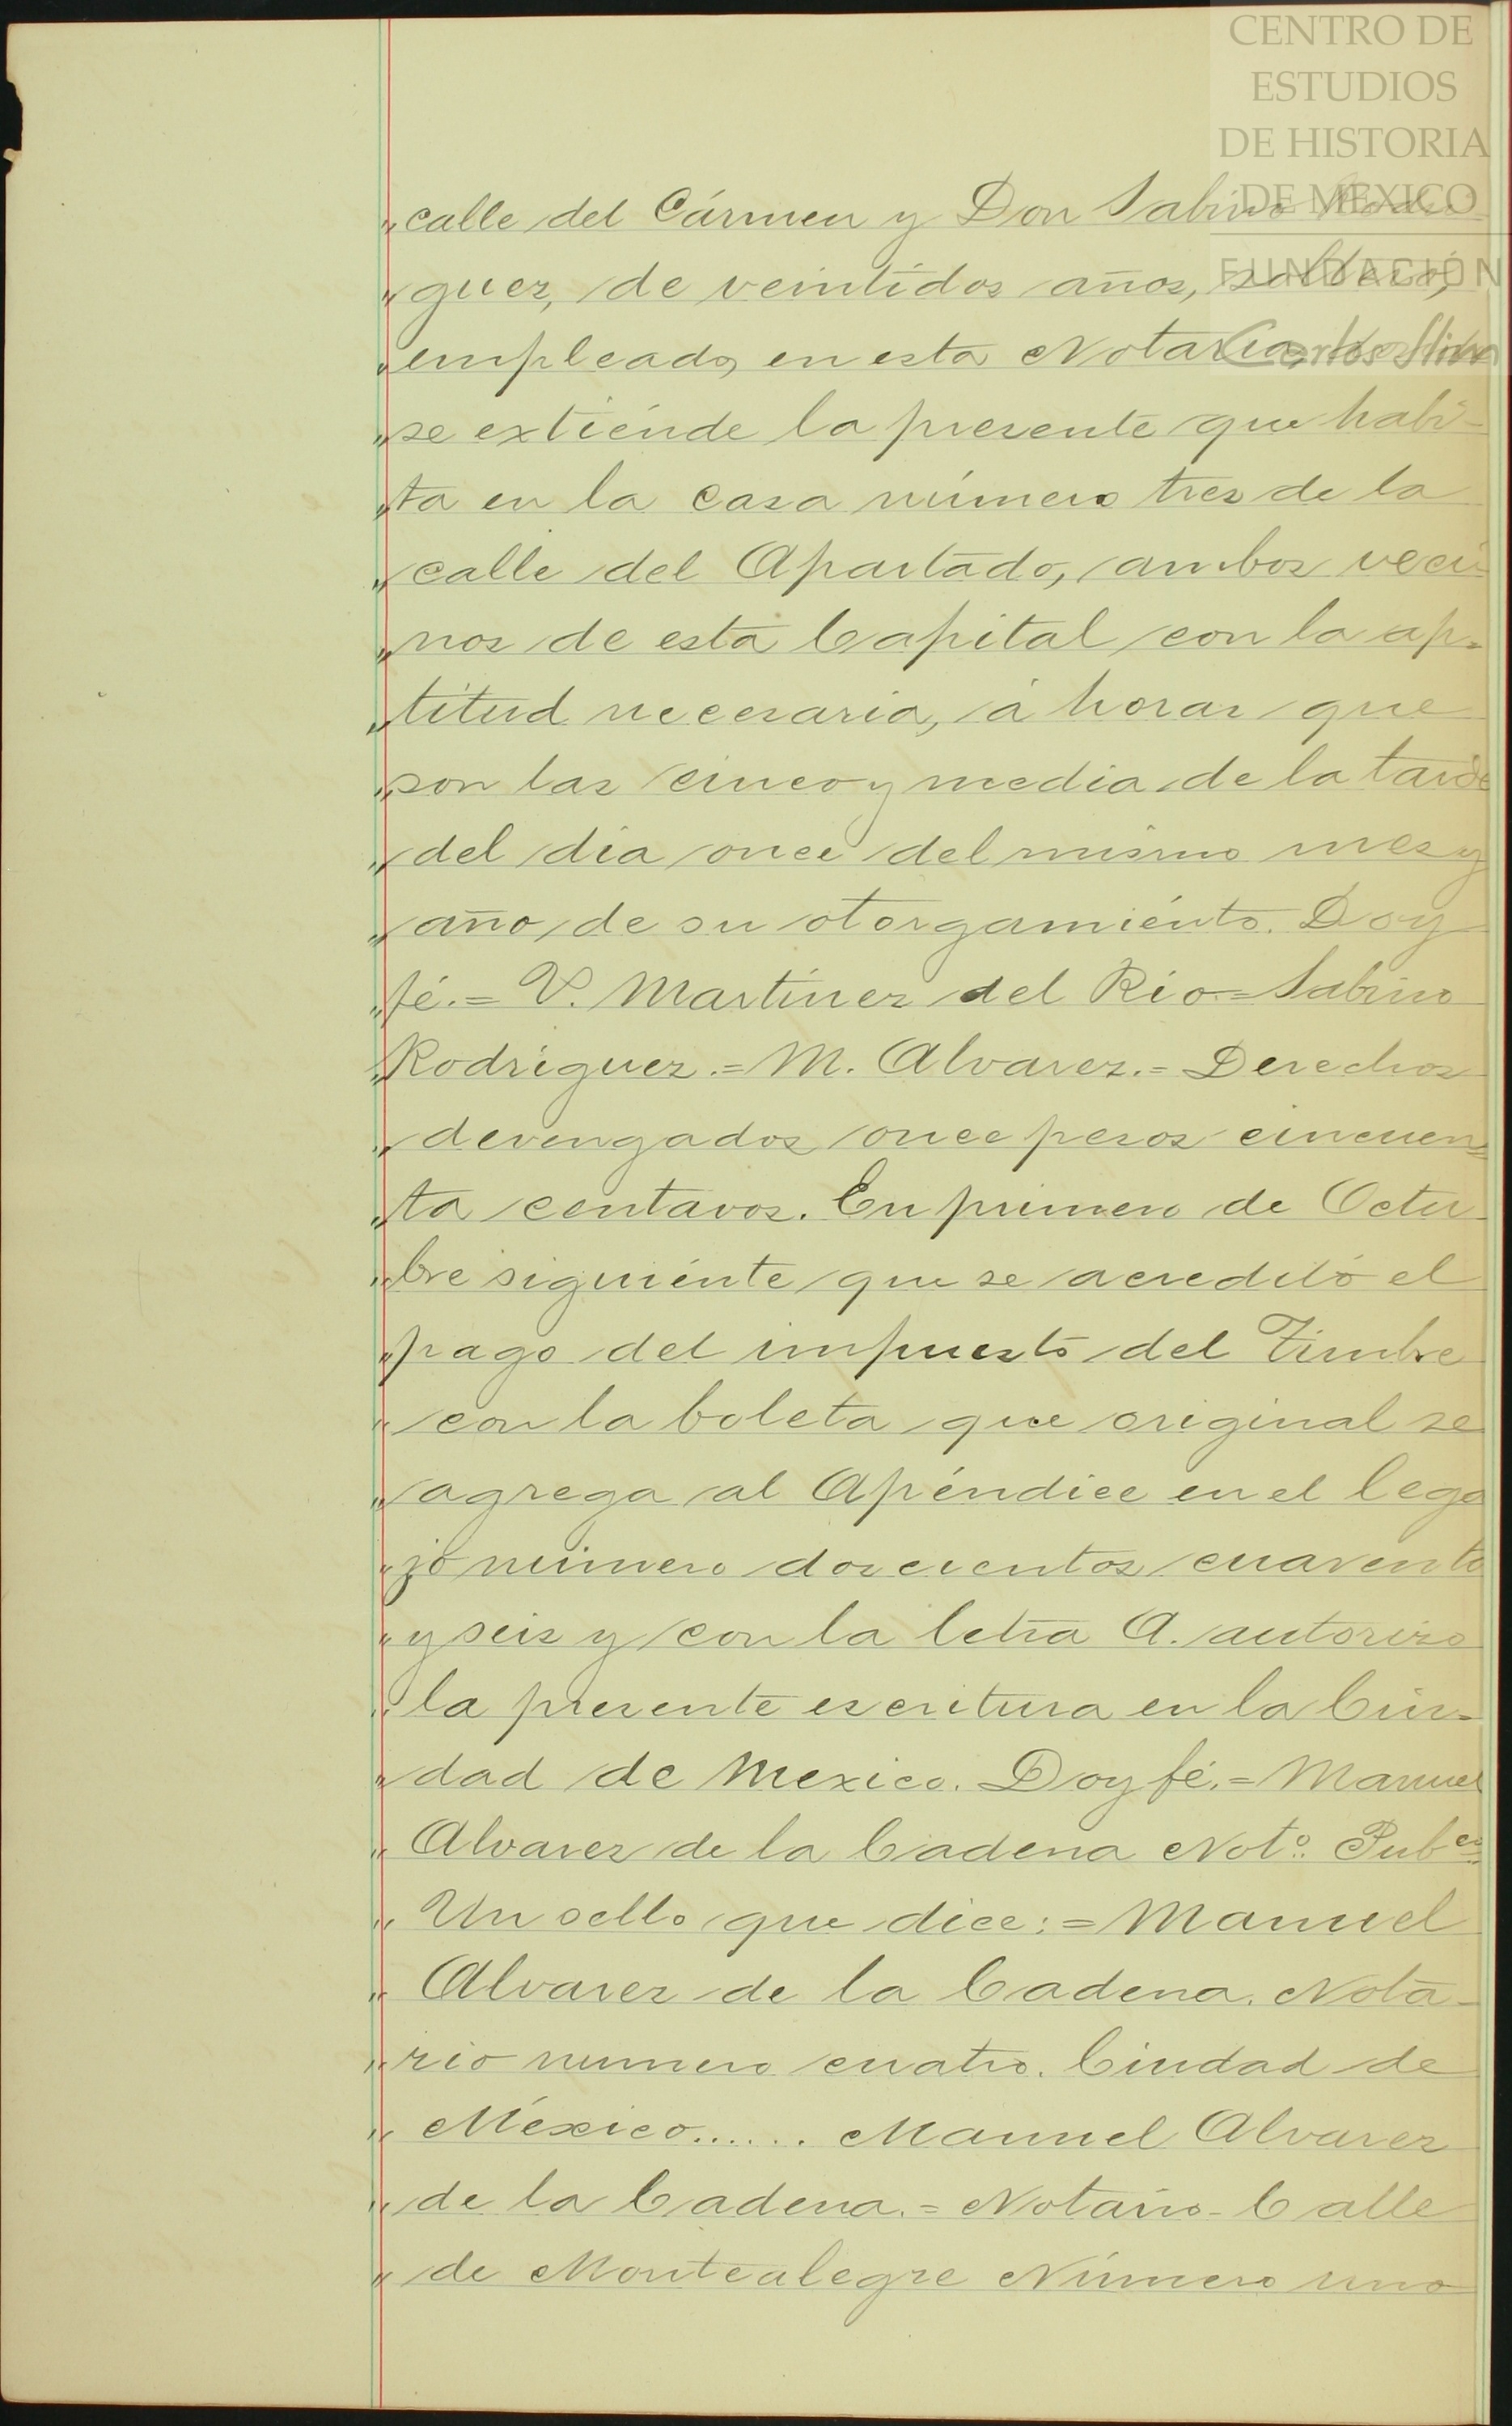 CENTRO DE
ESTUDIOS
DE HISTORIA
DE MEXICO
FUNDACIÓN
Carlos Slim
„calle del Cármen y Don Sabino Rodri-
„guez, de veintidos años, soltero,
„empleado en esta Notaria,
„se extiénde la presente que habi-
„ta en la casa número tres de la
„calle del Apartado, ambos veci-
„nos de esta Capital con la ap-
„titud necesaria, á horas que
„son las cinco y media de la tarde
„del dia once del mismo mes y
„año de su otorgamiénto. Doy
„fé.= V. Martinez del Rio.= Sabino
„Rodriguez.= M. Alvarez.= Derechos
„devengados once pesos cincuen-
„ta centavos. En primero de Octu-
„bre siguiénte que se acreditó el
„pago del impuesto del Timbre
„con la boleta que original se
„agrega al Apéndice en el lega
„jo número doscientos cuarenta
„y seis y con la letra A. autorizo
„la presente escritura en la Ciu-
„dad de Mexico. Doy fé.= Manuel
„Alvarez de la Cadena Notº. Pubco.
„Un sello que dice:= Manuel
„Alvarez de la Cadena. Nota-
„rio numero cuatro. Ciudad de
„México...... Manuel Alvarez
„de la Cadena.= Notario- Calle
„de Montealegre Número uno